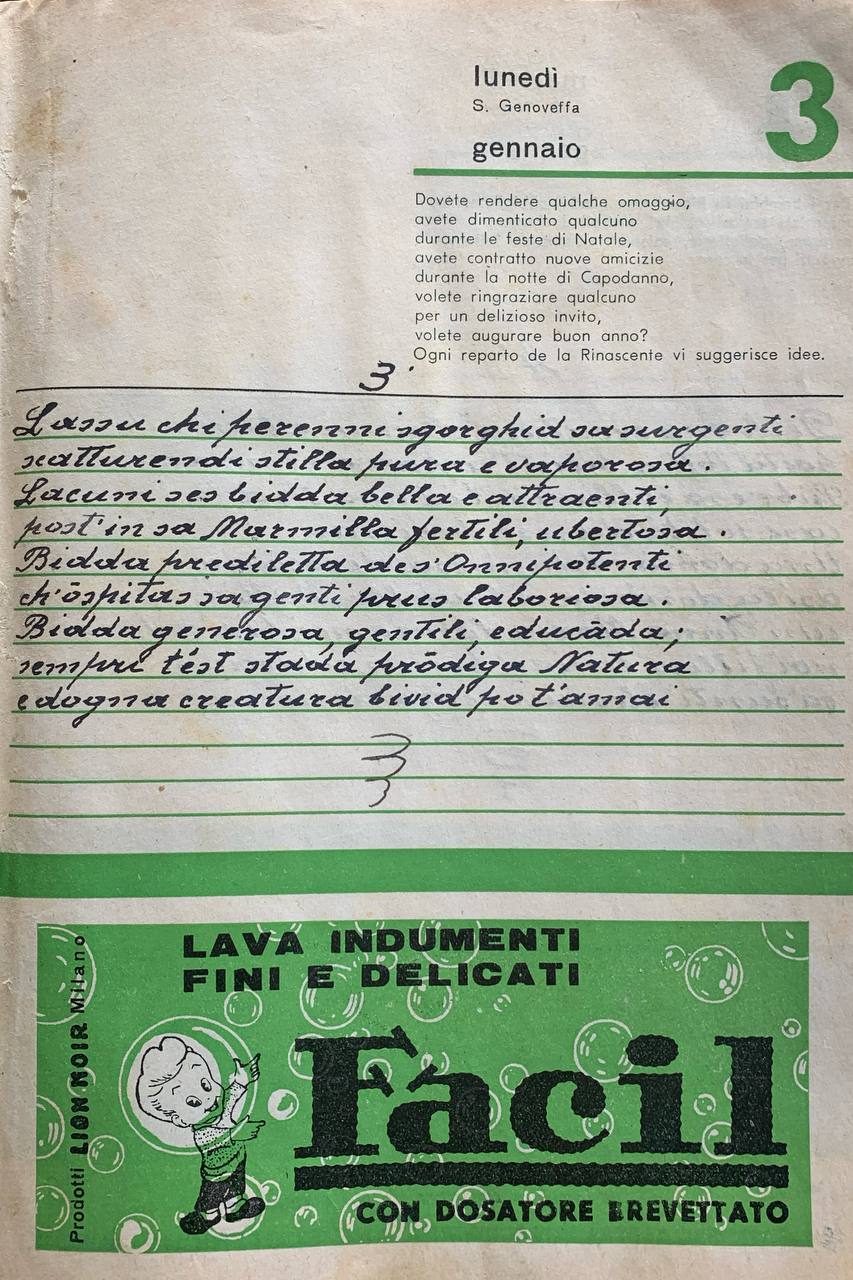 lunedì
S. Genoveffa
gennaio
3
Dovete rendere qualche omaggio,
avete dimenticato qualcuno
durante le feste di Natale,
avete contratto nuove amicizie
durante la notte di Capodanno,
volete ringraziare qualcuno
per un delizioso invito,
volete augurare buon anno?
Ogni reparto de la Rinascente vi suggerisce idee.
3
Lassu chi perenni sgorghid sa surgenti
scatturendi stilla pura e vaporosa.
Lacuni ses bidda bella e attraenti,
post'in sa Marmilla fertili, ubertosa.
Bidda prediletta des'Onnipotenti
ch'ōspitas sa genti prus laboriosa.
Bidda generosa, gentili, educāda;
sempri t'ést stada prōdiga Natura
e dogna creatura bivid po t'amai
LAVA INDUMENTI
FINI E DELICATI
Fàcil
CON DOSATORE BREVETTATO
Prodotti LION NOIR Milano